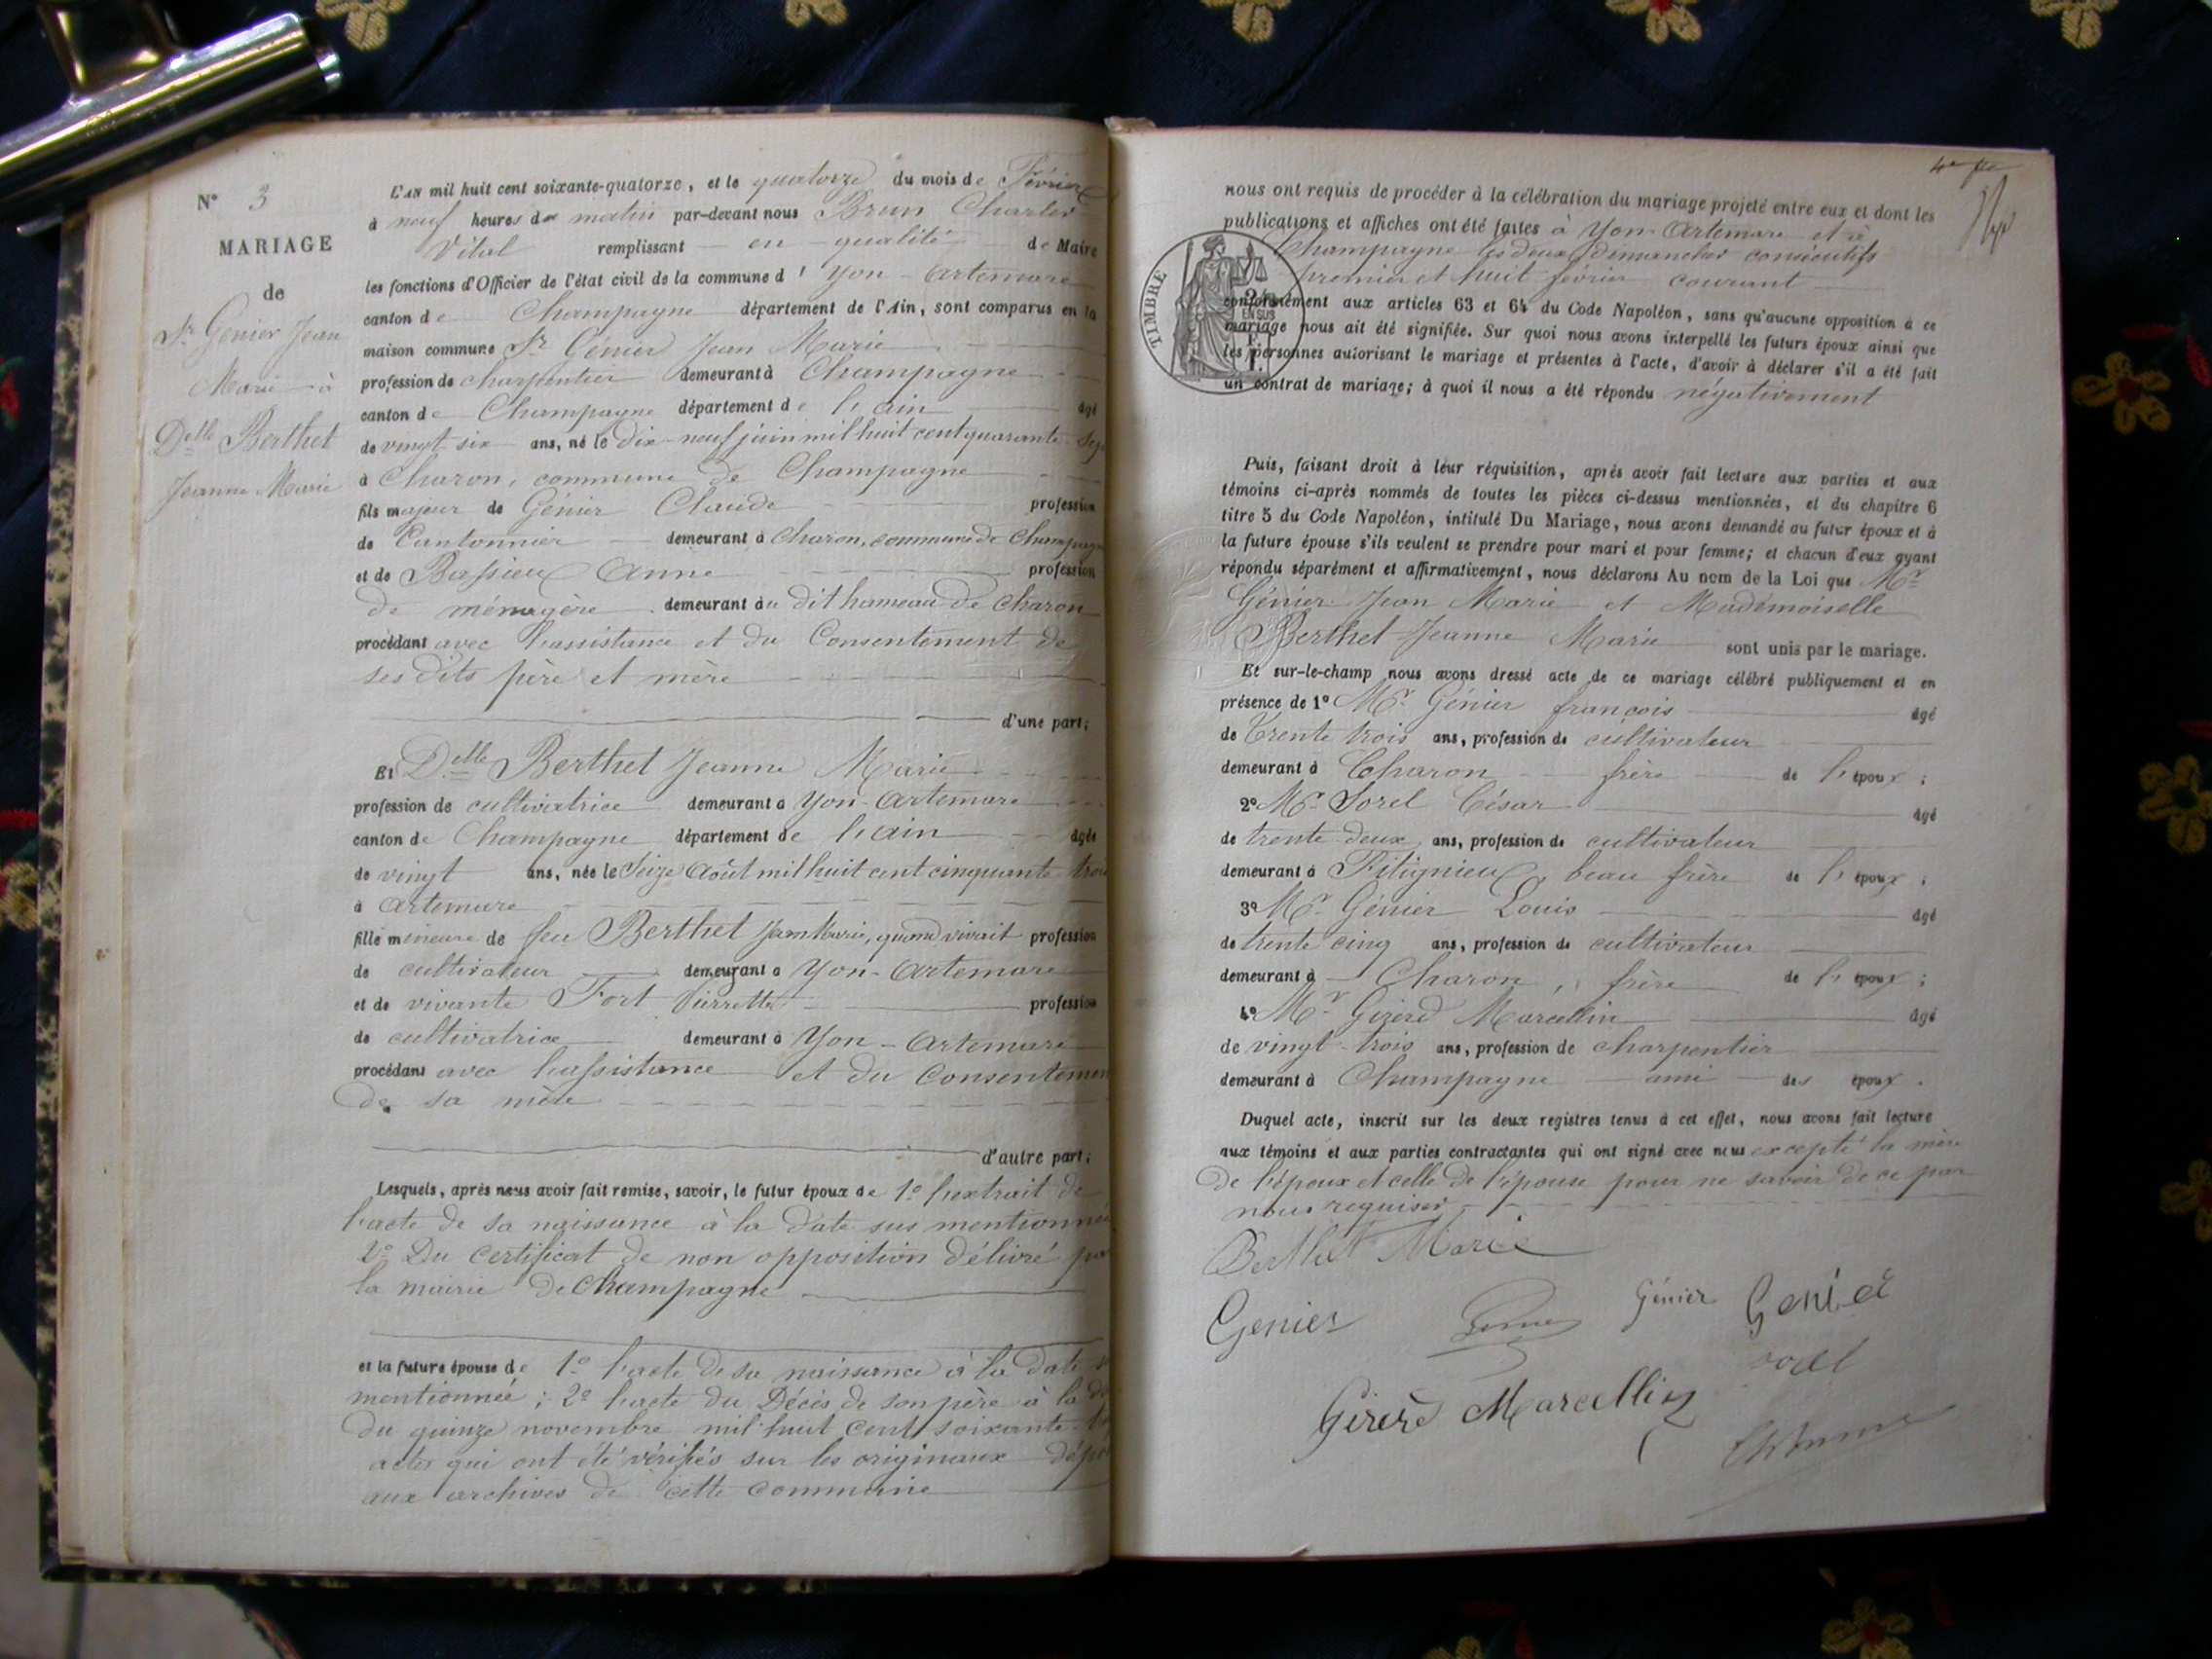 N° 3
MARIAGE
de
Sr Génier Jean
Marie à
Delle Berthet
Jeanne Marie
L'AN mil huit cent soixante-quatorze, et le quatorze du mois de Février
à neuf heures du matin par-devant nous Brun Charles
Vital remplissant en qualité de Maire
les fonctions d'Officier de l'état civil de la commune d' Yon-Artemare
canton de Champagne département de l'Ain, sont comparus en la
maison commune Sr Génier Jean Marie
profession de charpentier demeurant à Champagne
canton de Champagne département de l'ain âgé
de vingt six ans, né le dix-neuf juin mil huit cent quarante sep
à Charon, commune de Champagne
fils majeur de Génier Claude profession
de Cantonnier demeurant à Charon, commune de Champagn
et de Bassieu Anne profession
de ménagère demeurant au dit hameau de Charon
procédant avec l'assistance et du Consentement de
ses dits père et mère
d'une part;
Et Delle Berthet Jeanne Marie
profession de cultivatrice demeurant à Yon-Artemare
canton de Champagne département de l'ain âgée
de vingt ans, née le Seize Août mil huit cent cinquante trois
à Artemare
fille mineure de feu Berthet Jean Marie, quand vivait profession
de cultivateur demeurant à Yon-Artemare
et de vivante Fort Pierrette profession
de cultivatrice demeurant à Yon-Artemare
procédant avec l'assistance et du Consentemen
de sa mère
d'autre part;
Lesquels, après nous avoir fait remise, savoir, le futur époux de 1° l'extrait de
l'acte de sa naissance à la date sus mentionnée
2° Du certificat de non opposition délivré par
la mairie de Champagne
et la future épouse de 1° l'acte de sa naissance à la date
mentionnée; 2° l'acte du Décès de son père à la
du quinze novembre mil huit cent soixante
actes qui ont été vérifiés sur les originaux dépo
aux archives de cette commune
nous ont requis de procéder à la célébration du mariage projeté entre eux et dont les
publications et affiches ont été faites à Yon-Artemare et à
Champagne les deux dimanches consécutifs
premier et huit février courant
conformément aux articles 63 et 64 du Code Napoléon, sans qu'aucune opposition à ce
mariage nous ait été signifiée. Sur quoi nous avons interpellé les futurs époux ainsi que
les personnes autorisant le mariage et présentes à l'acte, d'avoir à déclarer s'il a été fait
un contrat de mariage; à quoi il nous a été répondu négativement
TIMBRE
EN SUS
Puis, faisant droit à leur réquisition, après avoir fait lecture aux parties et aux
témoins ci-après nommés de toutes les pièces ci-dessus mentionnées, et du chapitre 6
titre 5 du Code Napoléon, intitulé Du Mariage, nous avons demandé au futur époux et à
la future épouse s'ils veulent se prendre pour mari et pour femme; et chacun d'eux ayant
répondu séparément et affirmativement, nous déclarons Au nom de la Loi que Mr
Génier Jean Marie et Mademoiselle
Berthet Jeanne Marie sont unis par le mariage.
Et sur-le-champ nous avons dressé acte de ce mariage célébré publiquement et en
présence de 1° Mr Génier françois âgé
de Trente trois ans, profession de cultivateur
demeurant à Charon frère de l'époux;
2° Mr Sorel César âgé
de trente deux ans, profession de cultivateur
demeurant à Fitignieu, beau frère de l'époux;
3° Mr Génier Louis âgé
de trente cinq ans, profession de cultivateur
demeurant à Charon, frère de l'époux;
4° Mr Girerd Marcellin âgé
de vingt-trois ans, profession de charpentier
demeurant à Champagne ami des époux.
Duquel acte, inscrit sur les deux registres tenus à cet effet, nous avons fait lecture
aux témoins et aux parties contractantes qui ont signé avec nous excepté la mère
de l'époux et celle de l'épouse pour ne savoir de ce par
nous requises
Berthet Marie
Genier Génier Genié
Girerd Marcellin